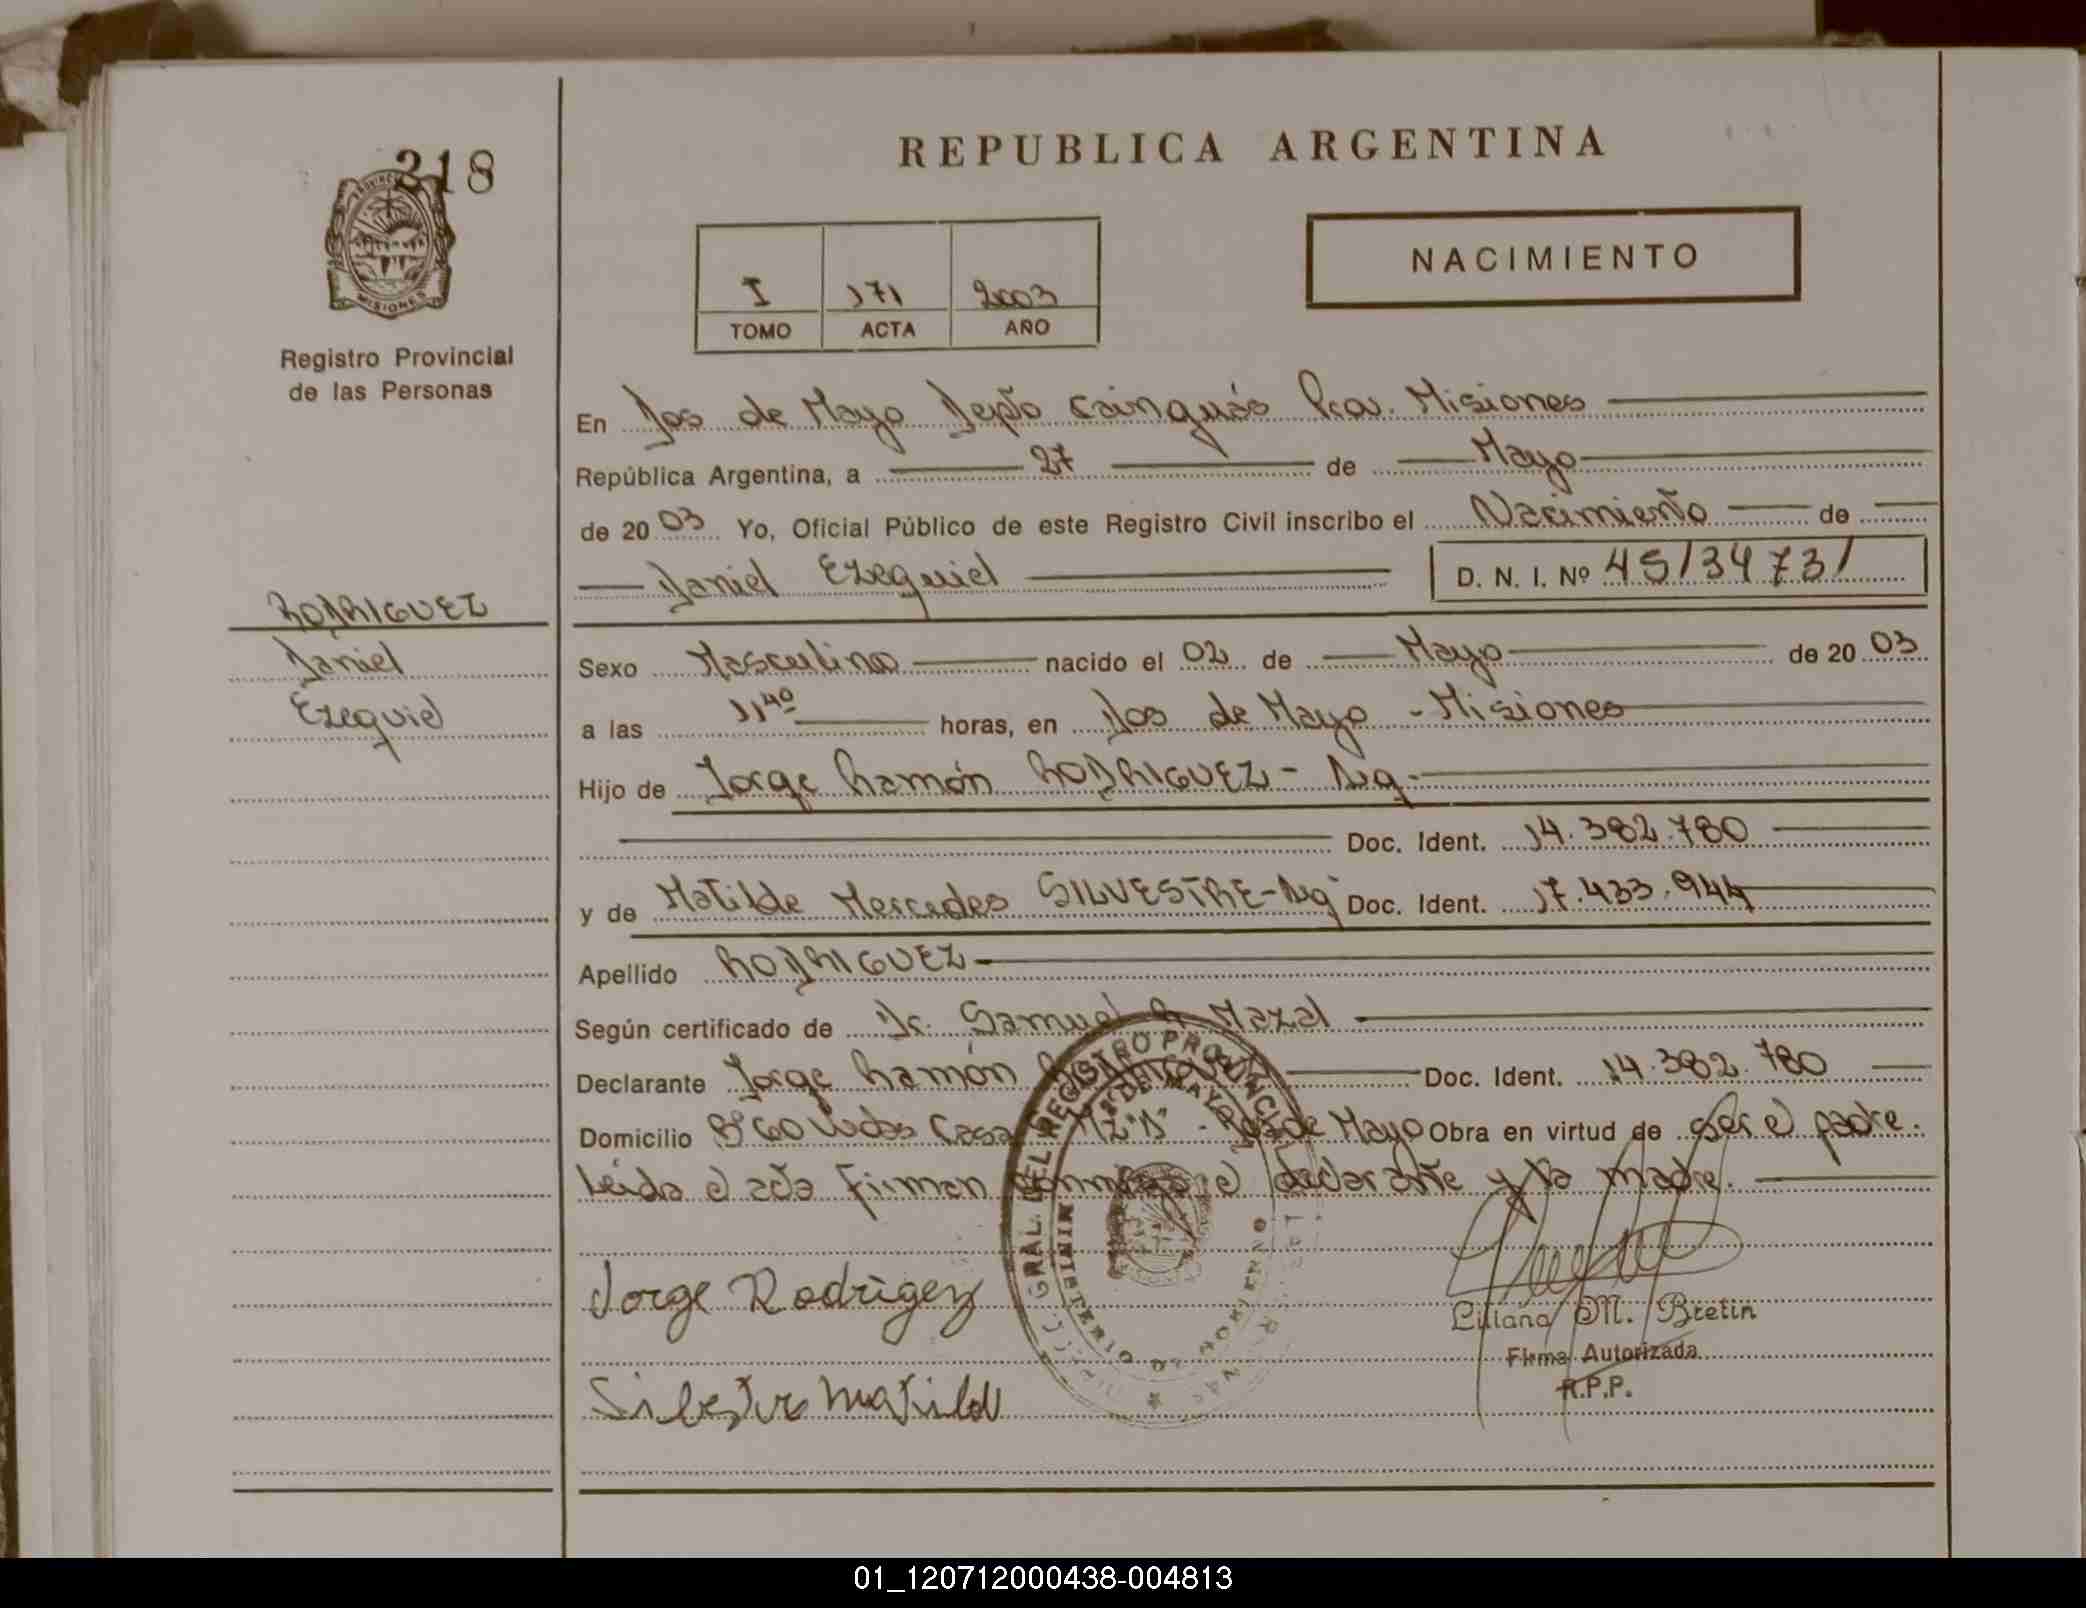 218
REPUBLICA ARGENTINA
NACIMIENTO
I 171 2003
TOMO ACTA AÑO
MISIONES
Registro Provincial
de las Personas
En Dos de Mayo Depto Cainguás Prov. Misiones
República Argentina, a 27 de Mayo
de 2003 Yo, Oficial Público de este Registro Civil inscribo el Nacimiento de
Daniel Ezequiel D. N. I. Nº 45134731
RODRIGUEZ
Daniel
Ezequiel
Sexo Masculino nacido el 02 de Mayo de 2003
a las 11⁴⁰ horas, en Dos de Mayo - Misiones
Hijo de Jorge Ramón RODRIGUEZ - Arg.
Doc. Ident. 14.382.780
y de Matilde Mercedes SILVESTRE - Arg Doc. Ident. 17.433.944
Apellido RODRIGUEZ
Según certificado de Dr. Samuel Mazal
Declarante Jorge Ramón Doc. Ident. 14.382.780
Domicilio Bº 60 Vvdas Casa Mz "D" - Dos de Mayo Obra en virtud de ser el padre.
Leida el acta firman conmigo el declarante y la madre.
GRAL. DEL REGISTRO PROVINCIAL
MINISTERIO DE GOBIERNO
DOS DE MAYO
Jorge Rodrigez
Silbestre Matilde
Liliana M. Bretin
Firma Autorizada
R.P.P.
01_120712000438-004813